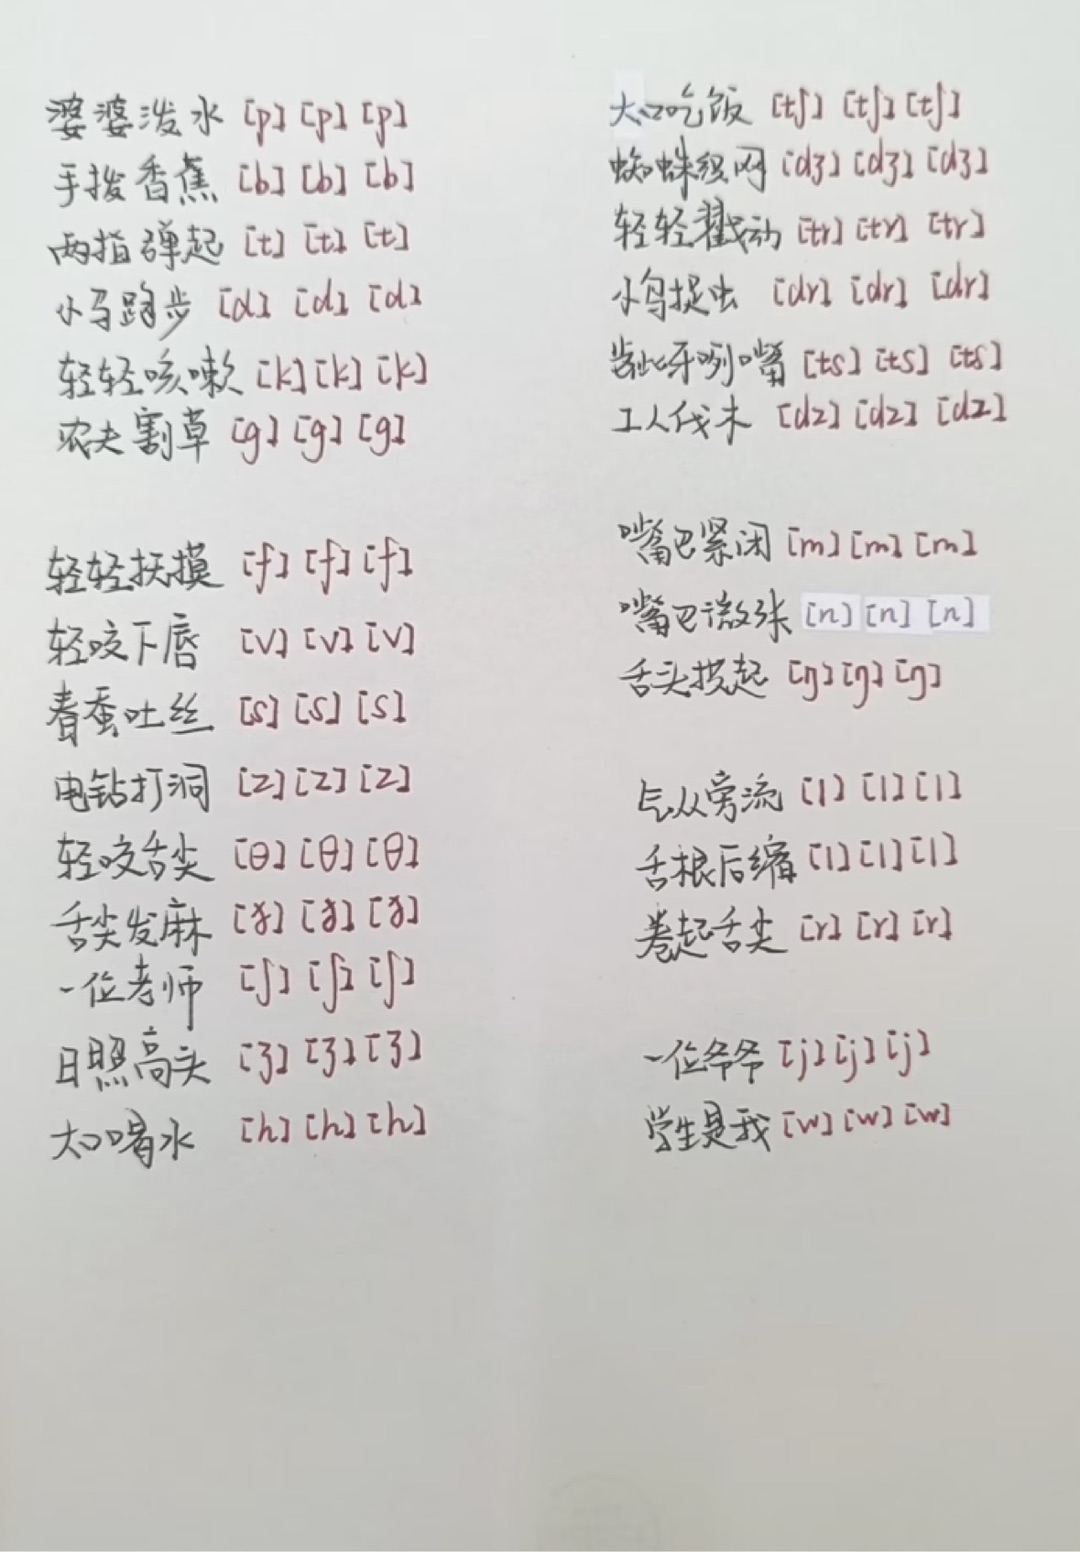 婆婆泼水 [p] [p] [p]
手拨香蕉 [b] [b] [b]
两指弹起 [t] [t] [t]
小马跑步 [d] [d] [d]
轻轻咳嗽 [k] [k] [k]
农夫割草 [g] [g] [g]
轻轻抚摸 [f] [f] [f]
轻咬下唇 [v] [v] [v]
春蚕吐丝 [s] [s] [s]
电钻打洞 [z] [z] [z]
轻咬舌尖 [θ] [θ] [θ]
舌尖发麻 [ð] [ð] [ð]
一位老师 [ʃ] [ʃ] [ʃ]
日照高头 [ʒ] [ʒ] [ʒ]
大口喝水 [h] [h] [h]
大口吃饭 [tʃ] [tʃ] [tʃ]
蜘蛛织网 [dʒ] [dʒ] [dʒ]
轻轻戳动 [tr] [tr] [tr]
小鸟捉虫 [dr] [dr] [dr]
龇牙咧嘴 [ts] [ts] [ts]
工人伐木 [dz] [dz] [dz]
嘴巴紧闭 [m] [m] [m]
嘴巴微张 [n] [n] [n]
舌头拱起 [ŋ] [ŋ] [ŋ]
气从旁流 [l] [l] [l]
舌根后缩 [l] [l] [l]
卷起舌尖 [r] [r] [r]
一位爷爷 [j] [j] [j]
学生是我 [w] [w] [w]